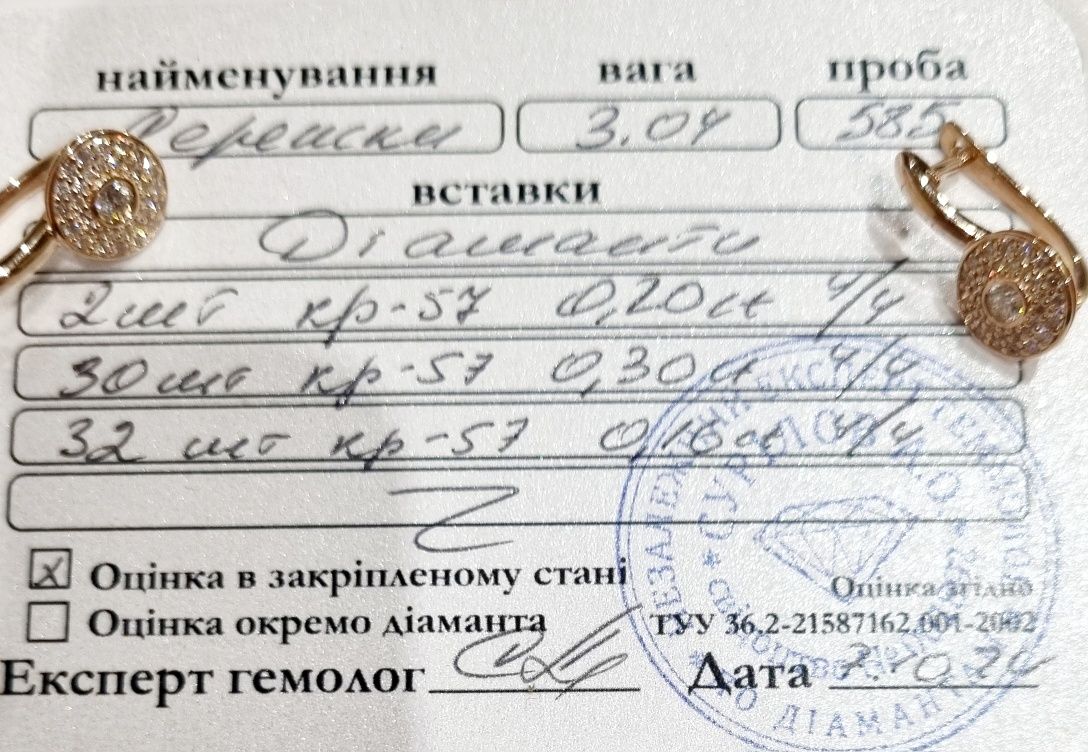 найменування вага проба
Сережки 3.04 585
вставки
Діаманти
2 шт кр-57 0,20 ct 4/4
30 шт кр-57 0,30 ct 4/4
32 шт кр-57 0,16 ct 4/4
Оцінка в закріпленому стані
Оцінка окремо діаманта
Оцінка згідно
ТУУ 36.2-21587162.001-2002
Експерт гемолог
Дата